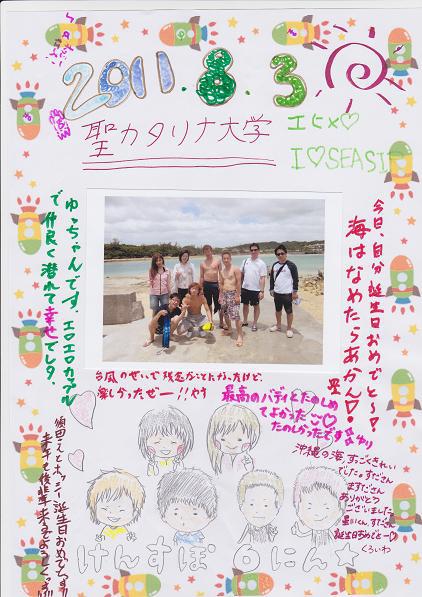 2011.8.3
聖カタリナ大学
エヒメ♡
I♡SEASIR
今日、自分誕生日おめでと〜!
海はなめたらあかん!
ゆっちゃんです。エロエロカップル
で仲良く潜れて幸せでした。
台風のせいで残念がことになったけど、
楽しかったぜー!!やす
最高のバディとたのしめ
てよかった
たのしかったです
ゆり
沖縄の海すごくきれい
でした。すださん
ますださん
ありがとう
ございました
星川くん、すださん
誕生日おめでとー♡
くろいわ
誕生日おめでとうです!!
けんすぽ6にん☆